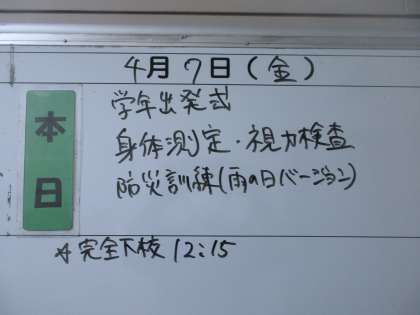 4月7日(金)
本日
学年出発式
身体測定・視力検査
防災訓練(雨の日バージョン)
☆完全下校 12:15